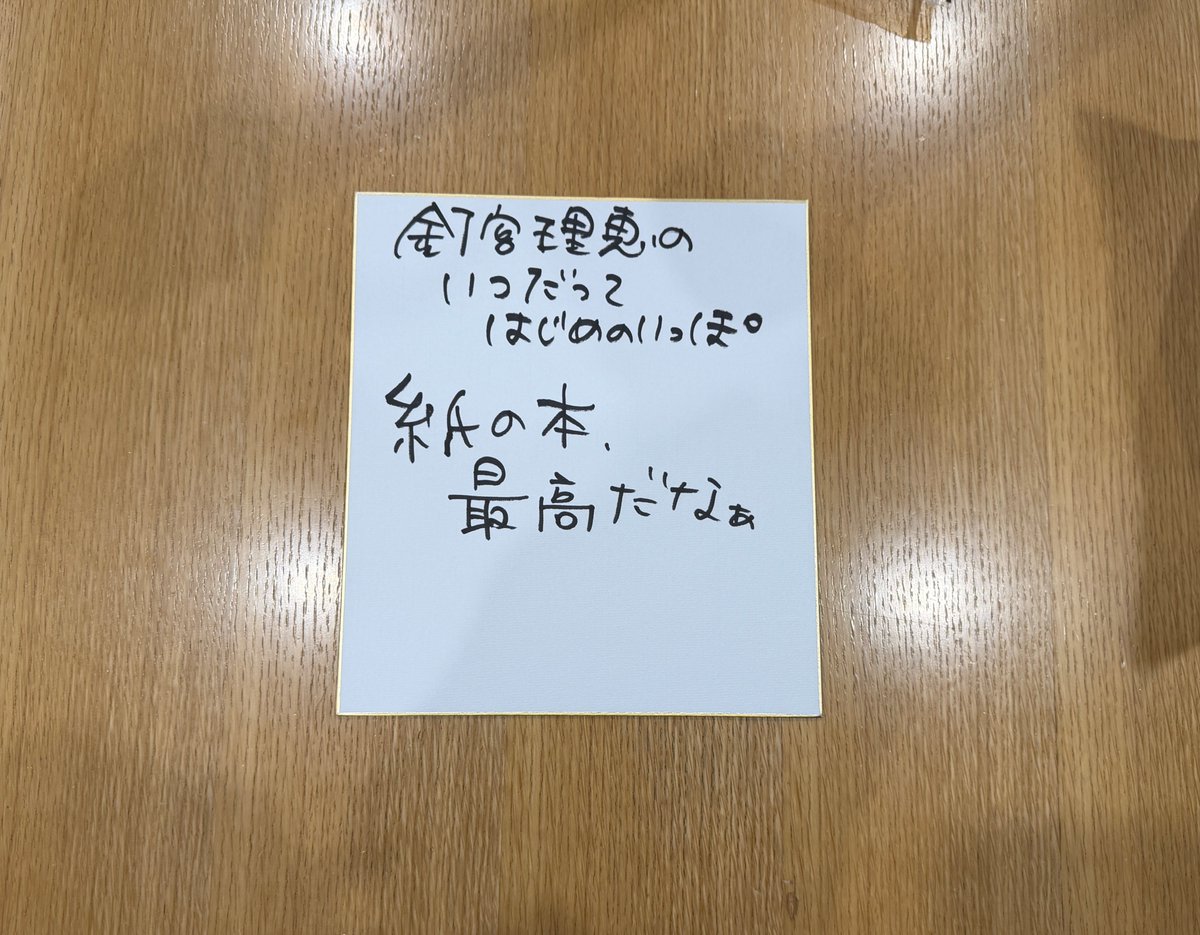 釘宮理恵の
いつだって
はじめのいっぽ。
紙の本、
最高だなぁ